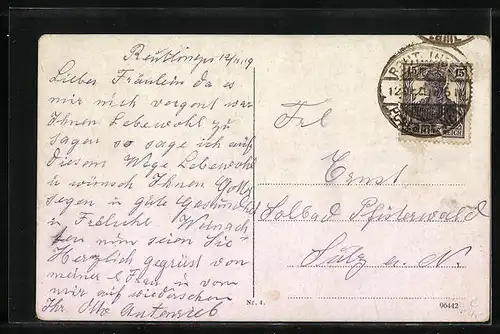 Reutlingen 12/1119
Lieber Fräulein da es
mir nich vergont war
Ihnen Lebewohl zu
sagen so sage ich auf
diesem Wege Lebewohl
u wünsch Ihnen Gottes
segen u gute Gesundheit
u Fröliche Weinach
ten nun seien Sie
Herzlich gegrüst von
meiner l Frau u von
mir auf wiedersehen
Ihr Otto Autenrieb
Frl
Ernst
Solbad Pfisterwald
Sulz a. N.
15 15
REICH
Nr. 4.
06442